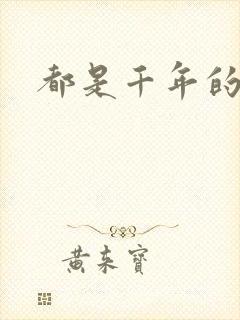 都是千年的
黄东宝